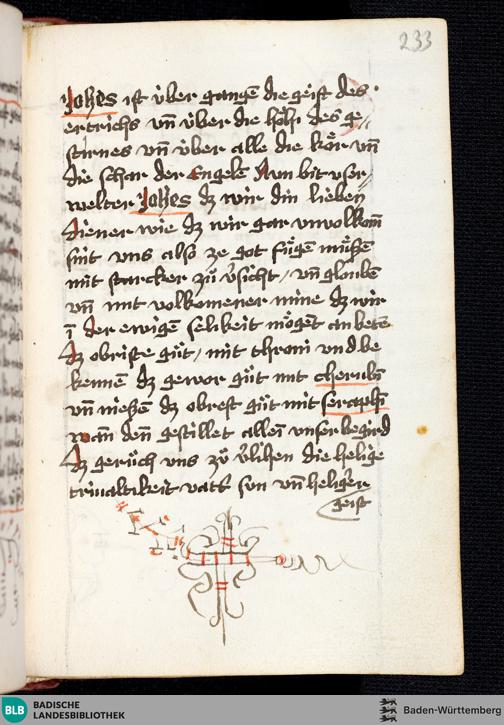 233
Johēs ist über gangē die geist des
ertrichs vn̄ über die höhi des ge//
stirnes vn̄ über alle die kör vn̄
die schar der Engelē Nun bit vser//
welter Johēs dz wir din lieben
diener wie dz wir gar vnvolkom̄
sint vns also ze got fügen müssē
mit starcker zů v̓sicht / vn̄ gloubē
vn̄ mit volkomener mine dz wir
ī der ewigē selikeit mögēt an betē
dz obriste gůt / mit throni vnd be
kennē dz gewor gůt mit cherubī
vn̄ niessē dz obrest gůt mit seraphī
wan̄ den̄ gestillet allei vnser begird
dz gerůch vns zů v̓lihen die helige
triualtikeit vatt̓ sun vn̄ heliger
geist
BLB BADISCHE
LANDESBIBLIOTHEK
Baden-Württemberg